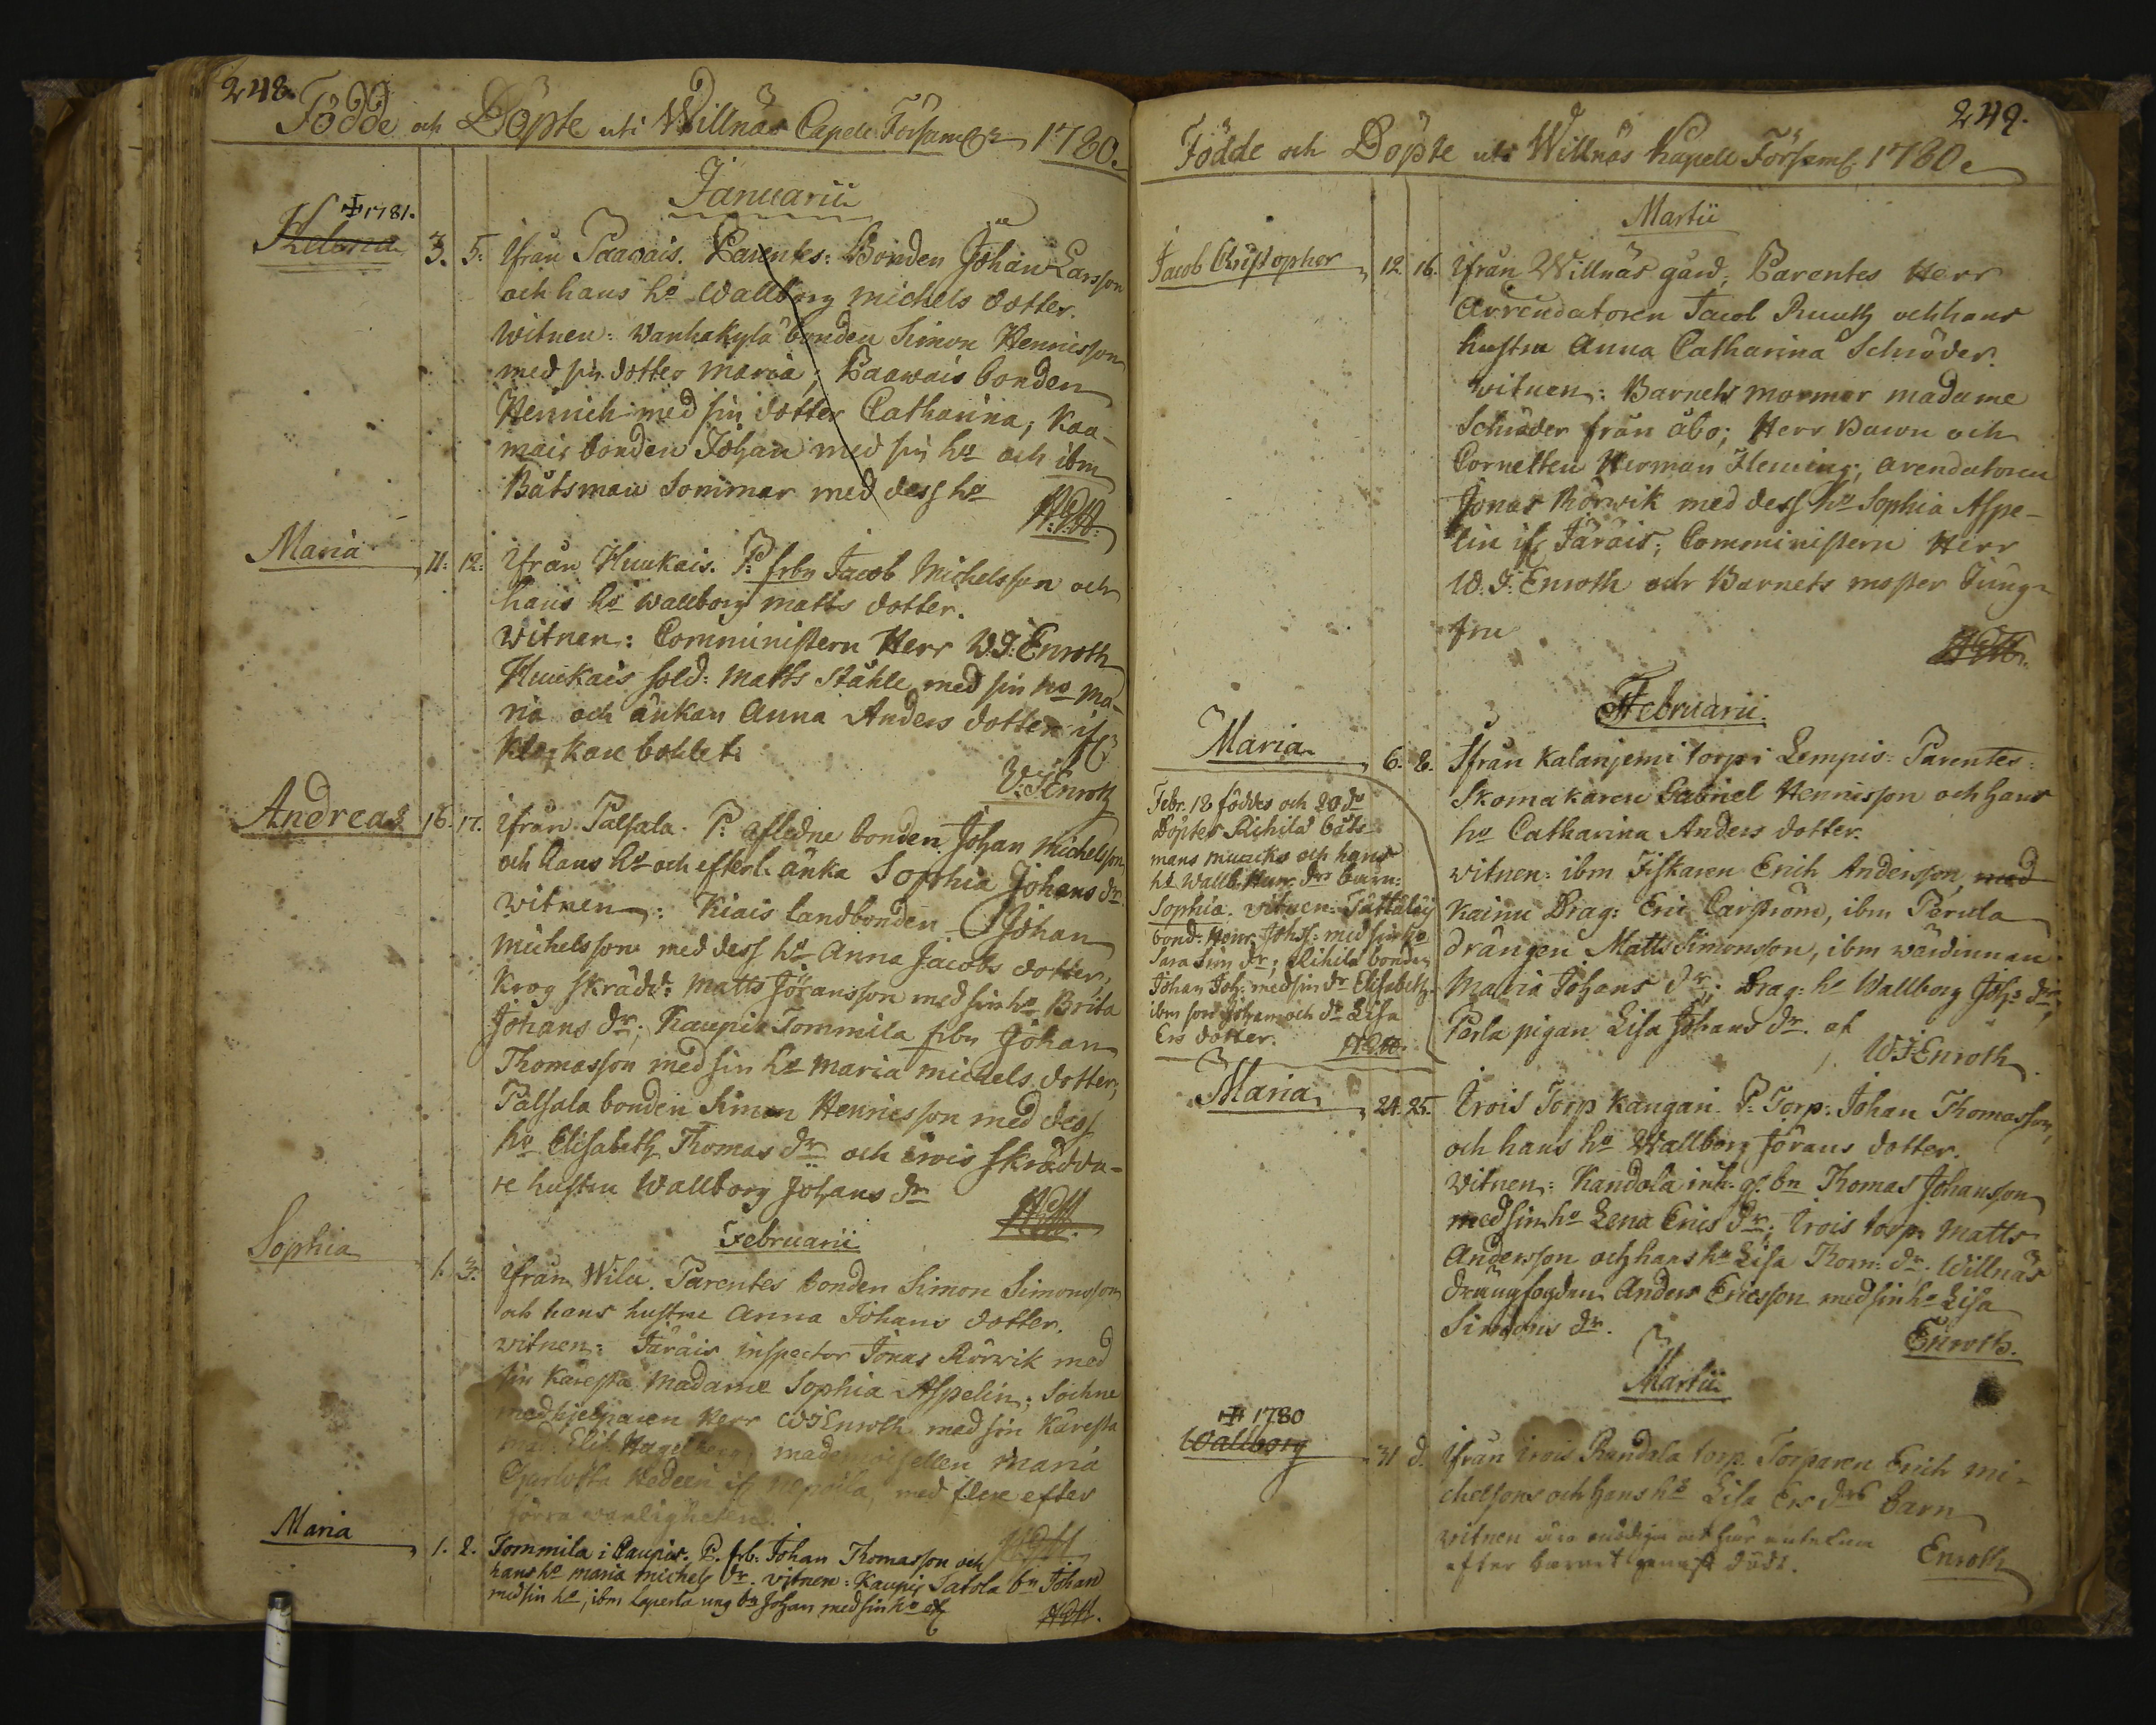 248.
Födde och Döpte uti Willnäs Capell Församl: 1780.
Januarii
✝ 1781.
Helena 3. 5. Ifrån Paavais. Parentes: Bonden Johan Larsson
och hans ho Wallborg Michels dotter.
Witnen: Wanhakylä bonden Simon Henricsson
med sin dotter Maria; Paawais bonden
Henrich med sin dotter Catharina; Kaa-
mais bonden Johan med sin ho och ibm
Båtsman Sommar med dess ho
Maria 11. 12. Ifrån Huukais. P: frbn Jacob Michelsson och
hans ho Wallborg Matts dotter.
Witnen: Comministern Herr W.J: Enroth
Huukais sold: Matts Ståhle med sin ho Ma-
ria och änkan Anna Anders dotter if:
Klockare bohlet.
W: J Enroth
Andreas 16. 17. Ifrån Palsala. P: afledne bonden Johan Michelsson
och hans ho och efterl. änka Sophia Johans dr.
Witnen: Kiais landbonden Johan
Michelsson med dess ho Anna Jacobs dotter;
Krog skrädd: Matts Jöransson med sin ho Brita
Johans dr; Kaupis Tommila frbn Johan
Thomasson med sin ho Maria Michels dotter;
Palsala bonden Simon Henricsson med dess
ho Elisabeth Thomas dr och irois skrädda-
re hustru Wallborg Johans dr
Februarii
Sophia 1. 3. Ifrån Wilu. Parentes bonden Simon Simonsson
och hans hustru Anna Johans dotter.
Witnen: Järäis inspector Jonas Rörwik med
sin Käresta Madame Sophia Aspelin; Sochne
medhjelparen Herr W J Enroth med sin Käresta
mad: Elis. Hagelberg, mademoisellen Maria
Charlotta Hedeen if: med flere efter
förra wanligheten.
Maria 1. 2. Tommila i Caupis. P. frb. Johan Thomasson och
hans ho Maria Michels dr. Vitnen: Kaupis Satola bn Johan
med sin ho, ibm Laperla ung bn Johan med sin ho etc
249.
Födde och Döpte uti Willnäs Kapell Församl: 1780.
Martii
Jacob Christopher 12 16. Ifrån Willnäs gård, Parentes Herr
Arrendatoren Jacob Ruuth och hans
hustru Anna Catharina Schröder.
witnen: Barnets mormor madame
Schröder från åbo; Herr Baron och
Cornetten Herman Fleming; arendatoren
Jonas Rörwik med dess ho Sophia Aspe-
lin if: Järäis; Comministern Herr
W: J: Enroth och Barnets moster Jung-
fru
Februarii.
Maria 6. 8. Ifrån Kalanjemi torp i Lempis: Parentes:
Skomakaren Gabriel Henricsson och hans
ho Catharina Anders dotter.
witnen: ibm Fiskaren Erich Andersson, med
Kainu Drag: Eric Carström, ibm Perula
drängen Matts Simonsson, ibm wärdinnan
Maria Johans dr; Drag: ho Wallborg Johs dr;
Perla pigan Lisa Johans dr. etc
W J Enroth
Febr. 18 föddes och 20 do
döptes Rihilä båts-
mans Muuriks och hans
ho Wallb. Henr. drs barn:
Sophia. vitnen: Tattaläis
bond: Henr. Johss: med sin ho
Sara Sim dr; Rihilä bonden
Johan Joh: med sin dr Elisabeth
ibm son Johan och dr Lisa
Ers dotter.
Maria 24. 25. Irois Torp Kangari. P: Torp: Johan Thomasson,
och hans ho Wallborg Jörans dotter.
Witnen: Kandola inh. gl. bn Thomas Johansson
med sin ho Lena Erics dr; Irois torp: Matts
Andersson och hans ho Lisa Thom: dr. Willnäs
drängfogden Anders Ericsson med sin ho Lisa
Simons dr.
Enroth.
Martii
✝ 1780
Wallborg 31 d. Ifrån irois Randala torp. Torparen Erich Mi-
chelssons och hans ho Lisa Ers drs barn
witnen äro onödiga at här anteckna
efter barnet genast dödt.
Enroth